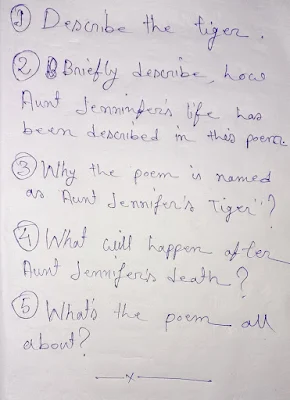 ① Describe the tiger.
② Briefly describe, how
Aunt Jenninfer's life has
been described in this poem.
③ Why the poem is named
as "Aunt Jennifer's Tiger"?
④ What will happen after
Aunt Jennifer's death?
⑤ What's the poem all
about?
x